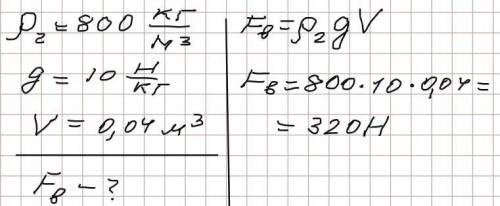 ρ₂ = 800 кг/м³
g = 10 Н/кг
V = 0,04 м³
Fв – ?
Fв = ρ₂ g V
Fв = 800 · 10 · 0,04 =
= 320 Н